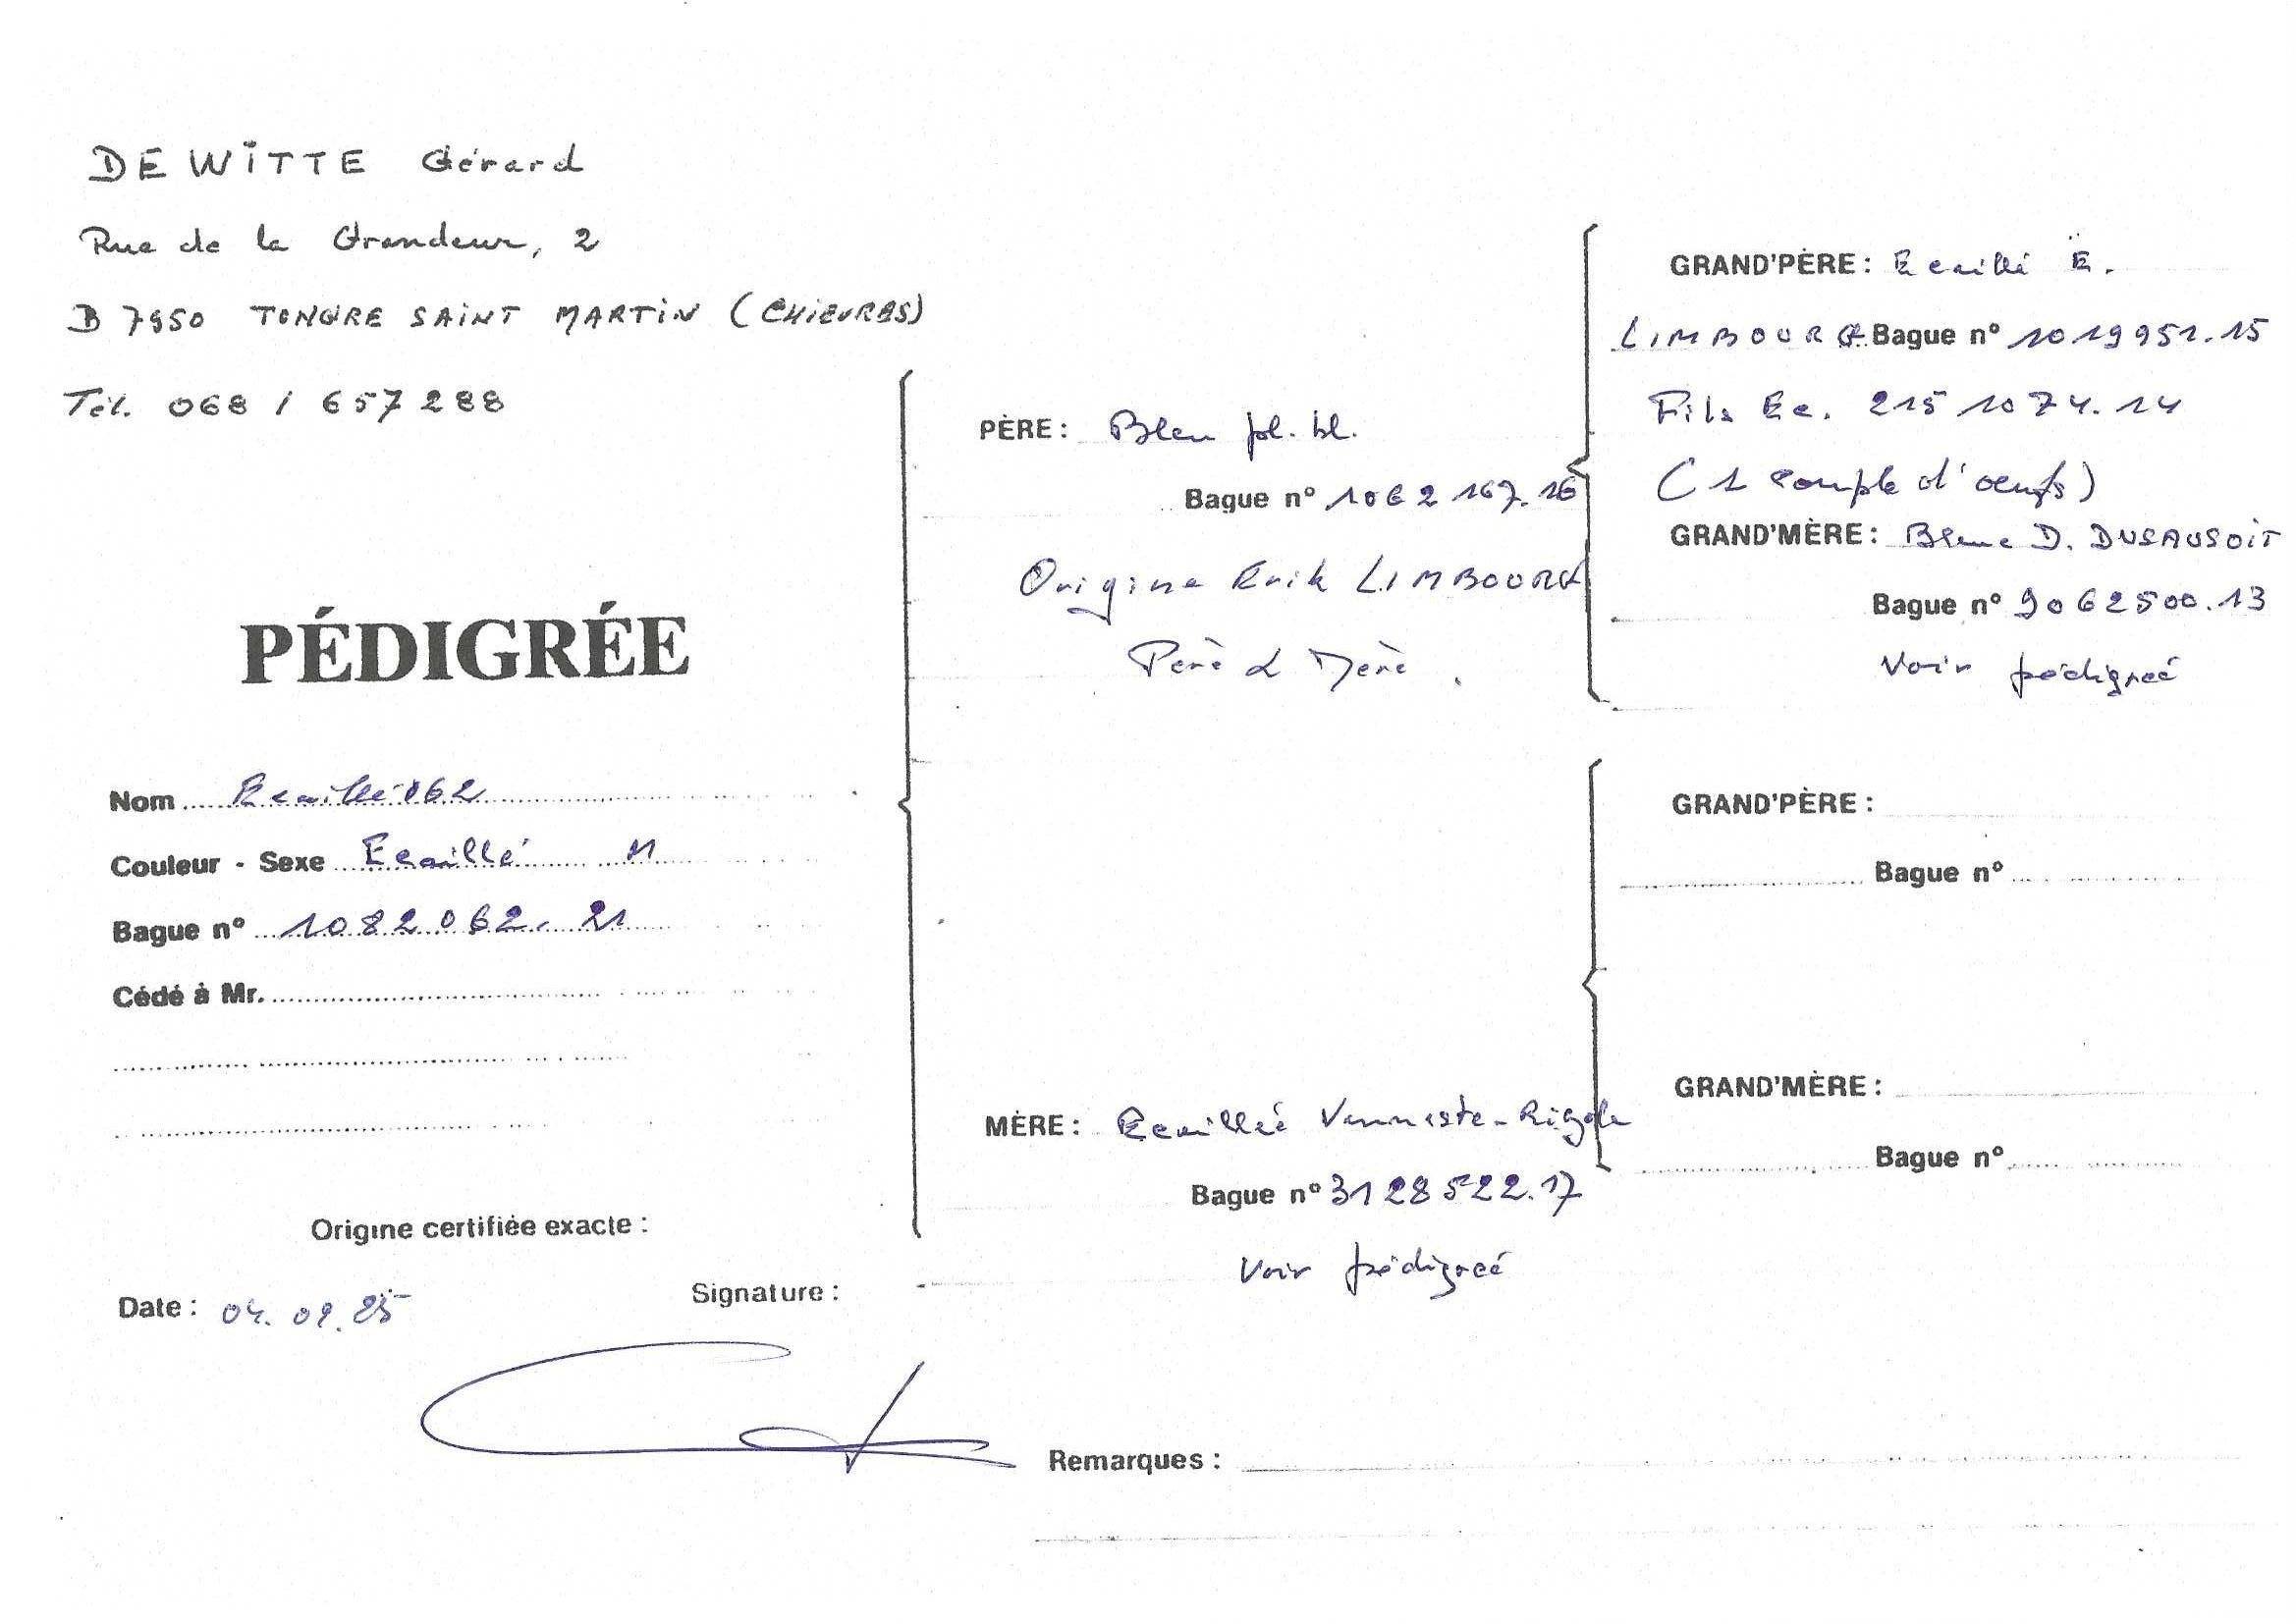 DEWITTE Gérard
Rue de la Grandeur, 2
B 7950 TONGRE SAINT MARTIN (CHIEVRES)
Tél. 068 / 657288
PÉDIGRÉE
Nom Ecaillé 062
Couleur - Sexe Ecaillé M
Bague n° 1082062. 21
Cédé à Mr.
Origine certifiée exacte :
Date : 04. 02. 25
Signature :
PÈRE : Bleu pl. bl.
Bague n° 1062167.16
Origine Erik LIMBOURG
Père & Mère.
MÈRE : Ecaillée Vanneste-Rigole
Bague n° 3128522.17
Voir pédigreé
GRAND'PÈRE : Ecaillé E.
LIMBOURG Bague n° 1019951.15
Fils Ec. 2151074.14
(1 couple d'oeufs)
GRAND'MÈRE : Bleue D. DUSAUSOIT
Bague n° 9062500.13
Voir pédigreé
GRAND'PÈRE :
Bague n°
GRAND'MÈRE :
Bague n°
Remarques :